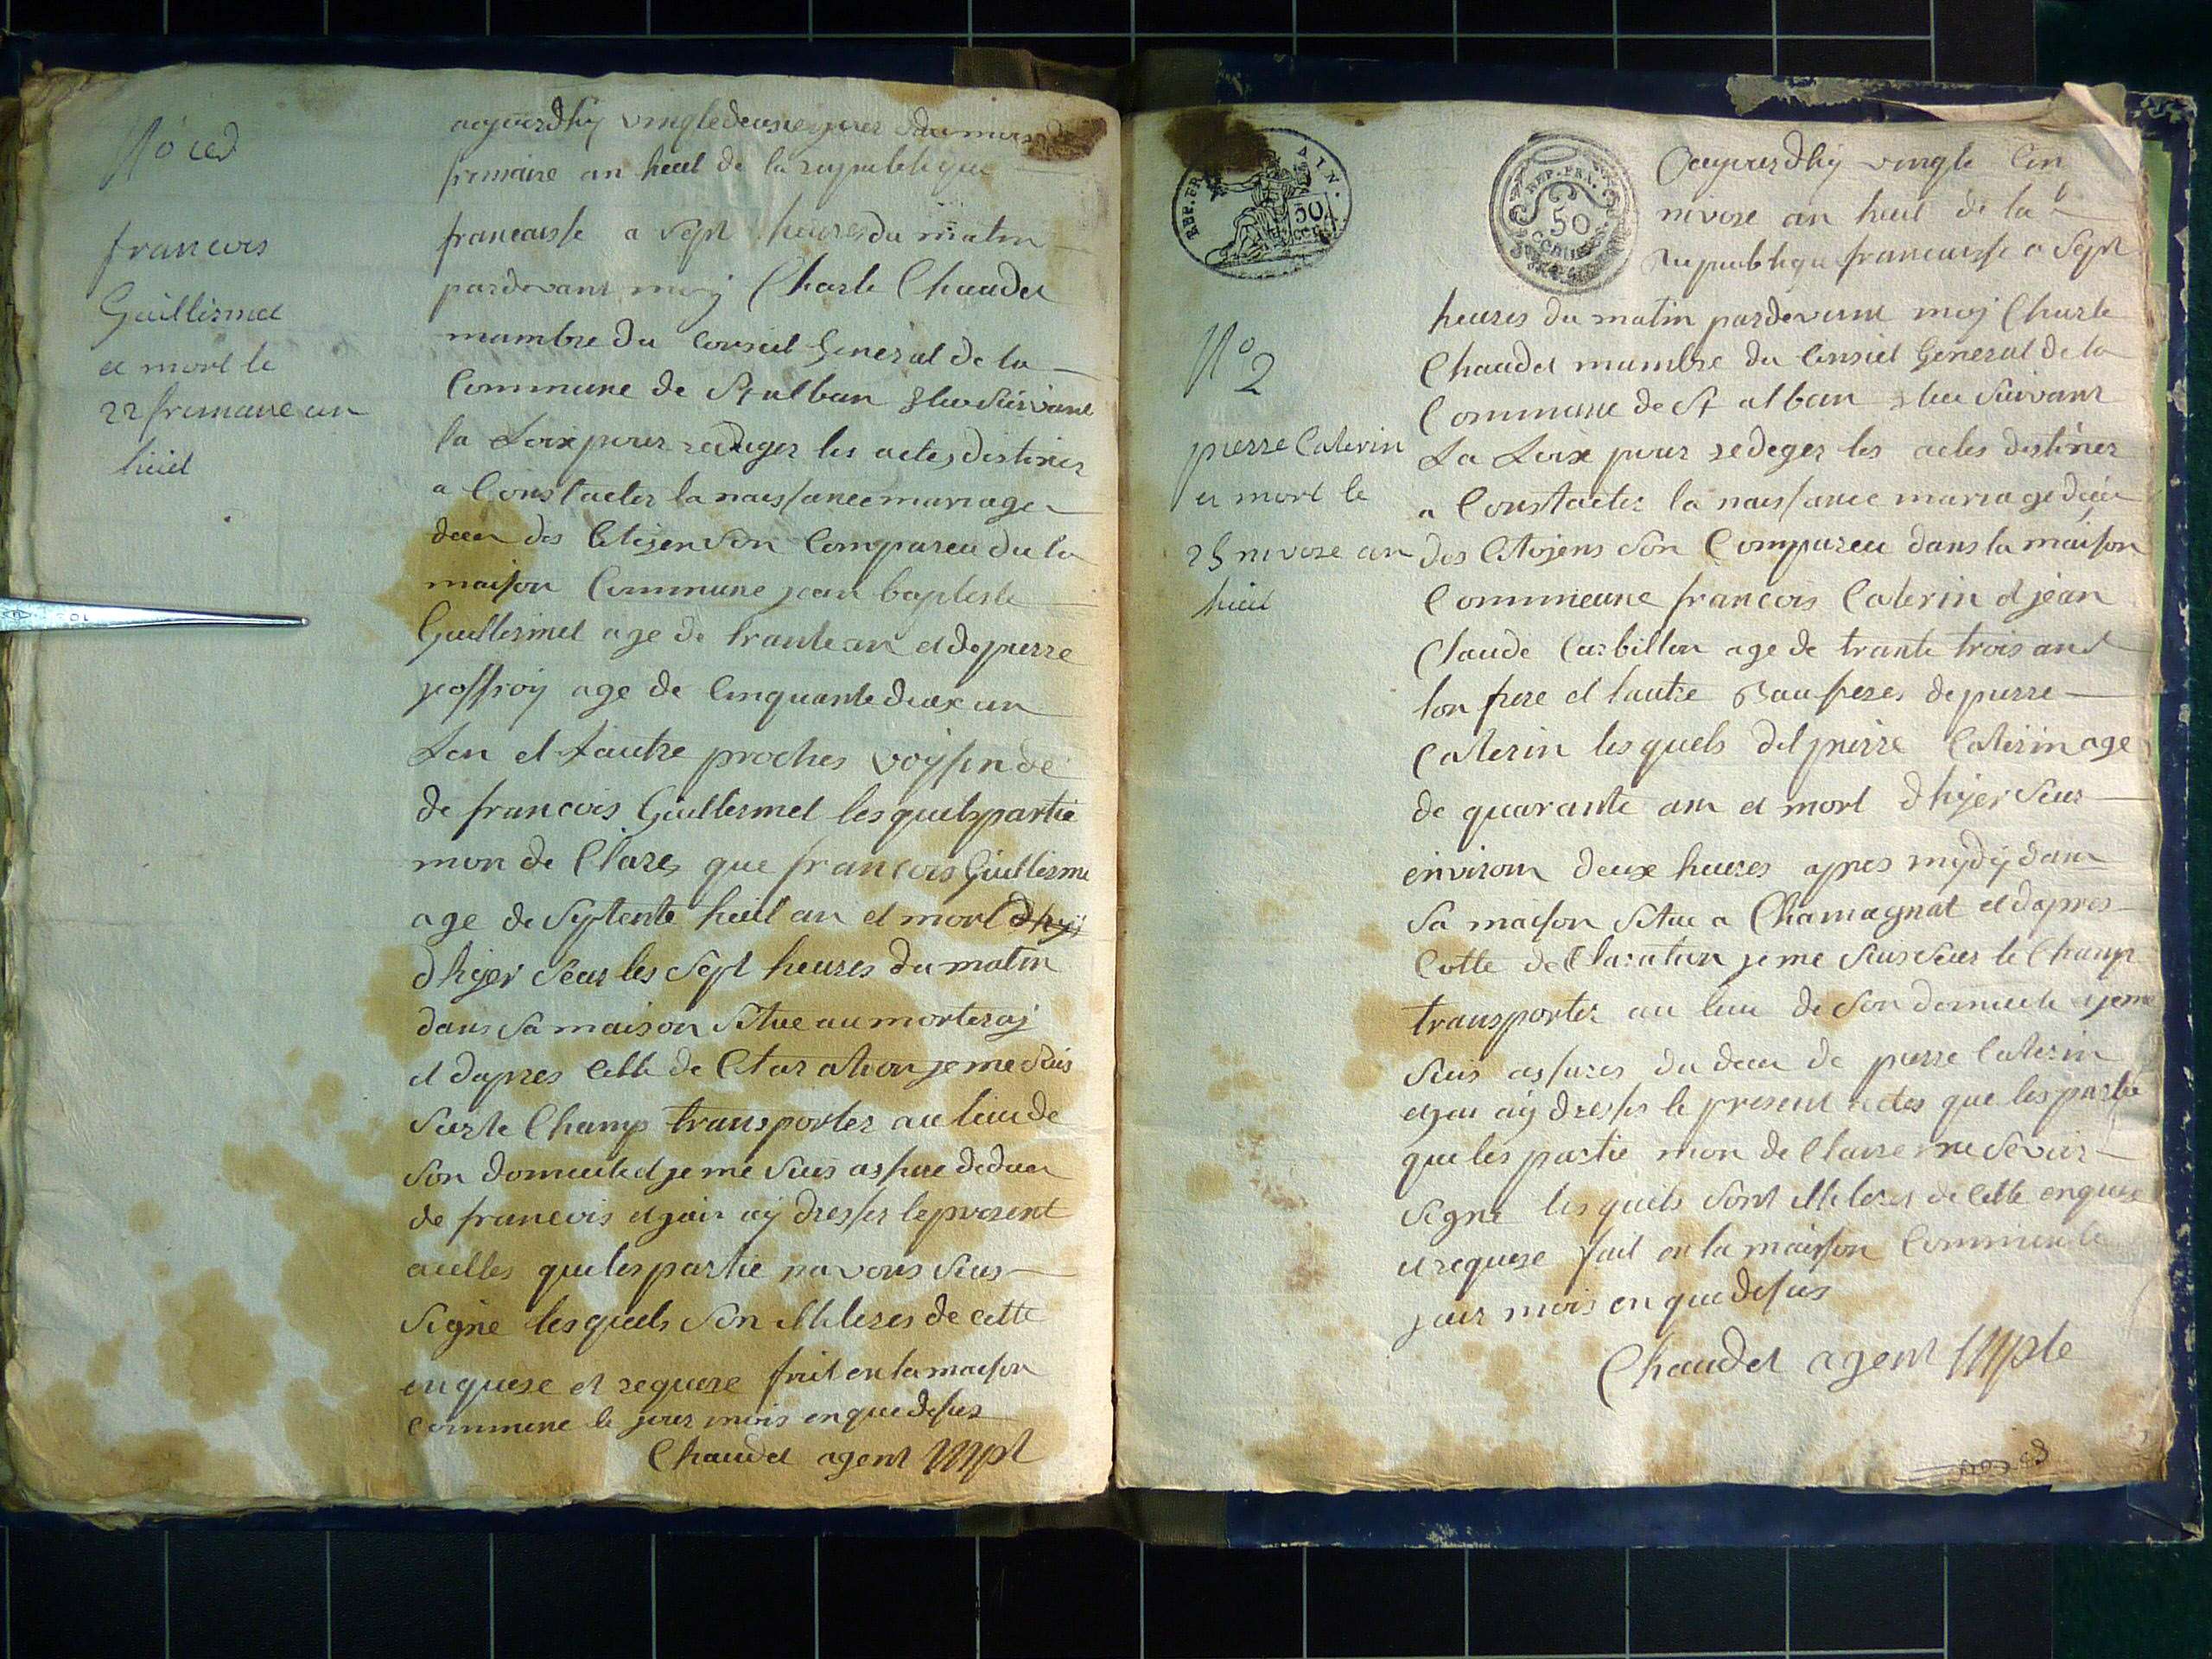 francois
Guillermet
et mort le
22 frimaire an
huit
aujourdhy vingt deuxie jour du mois de
frimaire an heut de la republique
francaisse a Sept heures du matin
pardevant moy Charle Chaudet
mambre du Conseil General de la
Commune de St alban Elu Suivant
la Loix pour rediger les actes destiner
a Constacter la naissance mariage
deces des Citojen Son Compareu du la
maison Commune jean baptiste
Guillermet age de trante an et de pierre
joffroy age de Cinquante deux an
Lun et Lautre proches voysin de
de francois Guillermet lesquels partie
mon de Clares que francois Guillerme
age de Septente huit an et mort dhyi
dhyer Seur les Sept heures du matin
dans Sa maison Situe au morteray
et dapres Cette de Claration je me Suis
Sur le Champ transporter au lieu de
Son domicile et je me Suis assure de deces
de francois et jair ay dresser le present
actes que les partie navons Sus
Signe lesquels Son Illileres de cette
enquere et requere fait en la maison
Commune le jour mois en que desus
Chaudet agent Mpl
REP. FRA.
AIN.
50
REP. FRA.
50
No 2
pierre Caterin
et mort le
25 nivose an
huit
aujourdhy vingt Cin
nivose an huit de la
Republique francaisse a Sept
heures du matin pardevant moy Charle
Chaudet mambre du Consiel General de la
Commune de St alban Elu Suivant
La Loix pour redeger les actes destiner
a Constacter la naissance mariage deces
des Citojens Son Compareu dans la maison
Commeune francois Caterin et jean
Claude Curbillon age de trante trois ans
lon frere et lautre Baufreres de pierre
Caterin lesquels dit pierre Caterin age
de quarante an et mort dhyer Seur
environ deux heures apres mydy dans
Sa maison Situe a Chamagnat et dapres
Cette de Claration je me Suis Seur le Champ
transporter au lieu de Son domicile et je me
Suis assures du deces de pierre Caterin
et jai ay dresser le present actes que les partie
que les partie mon de Claire ne Savoir
Signe lesquels Sont Illileres de Cette enquere
et requere fait en la maison Commune le
jour mois en que desus
Chaudet agent Mple